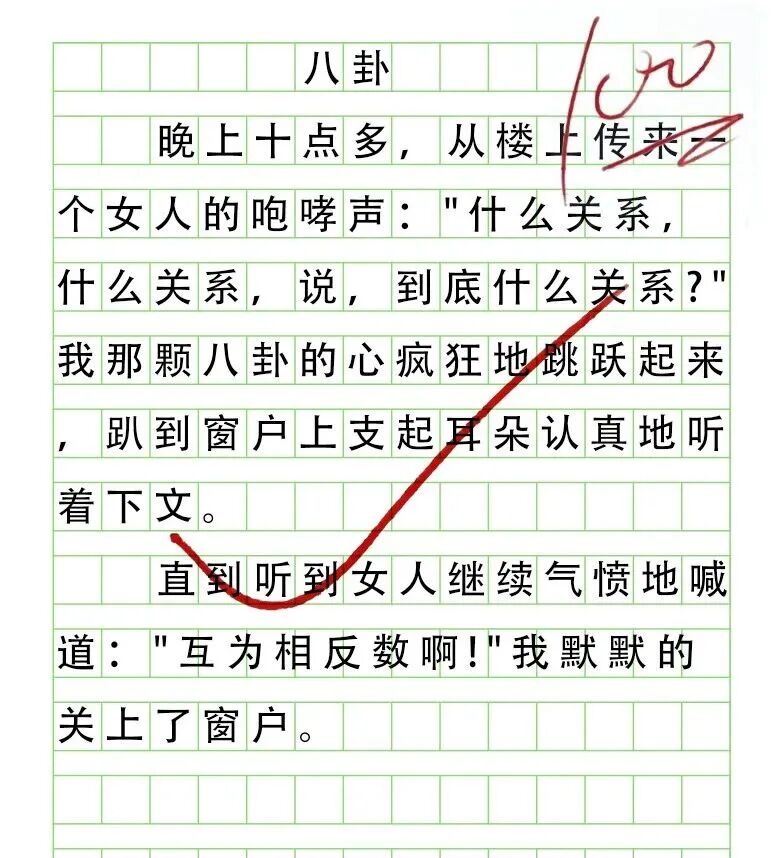 八卦
100
晚上十点多，从楼上传来一
个女人的咆哮声："什么关系，
什么关系，说，到底什么关系？"
我那颗八卦的心疯狂地跳跃起来
，趴到窗户上支起耳朵认真地听
着下文。
直到听到女人继续气愤地喊
道："互为相反数啊！"我默默的
关上了窗户。